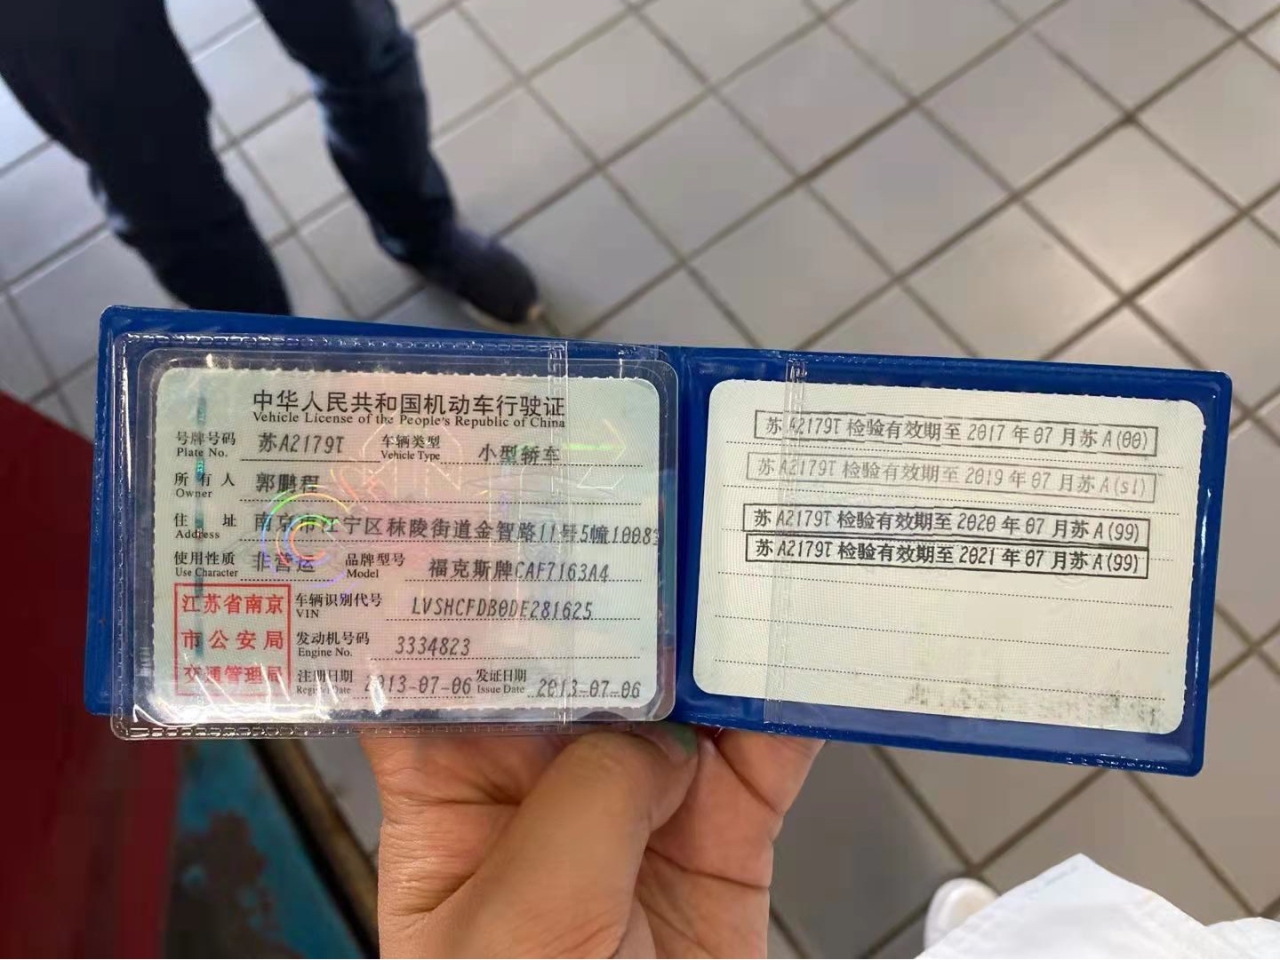 中华人民共和国机动车行驶证
Vehicle License of the People's Republic of China
号牌号码 苏A2179T 车辆类型 小型轿车
Plate No. Vehicle Type
所有人 郭鹏程
Owner
住址 南京市江宁区秣陵街道金智路11号5幢1008
Address
使用性质 非营运 品牌型号 福克斯牌CAF7163A4
Use Character Model
江苏省南京
市公安局
交通管理局
车辆识别代号 LVSHCFDB0DE281625
VIN
发动机号码 3334823
Engine No.
注册日期 2013-07-06 发证日期 2013-07-06
Register Date Issue Date
苏A2179T检验有效期至2017年07月苏A(00)
苏A2179T检验有效期至2019年07月苏A(sl)
苏A2179T检验有效期至2020年07月苏A(99)
苏A2179T检验有效期至2021年07月苏A(99)